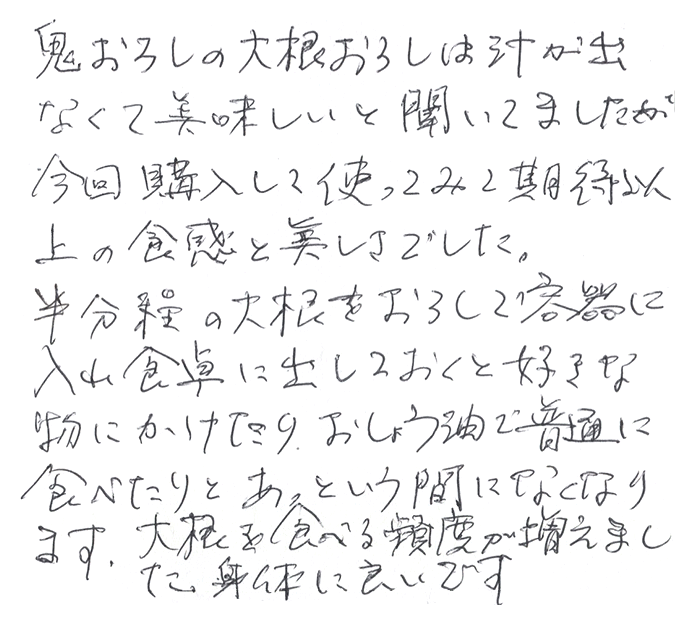 鬼おろしの大根おろしは汁が出
なくて美味しいと聞いてましたが
今回購入して使ってみて期待以
上の食感と美しさでした。
半分程の大根をおろして容器に
入れ食卓に出しておくと好きな
物にかけたり、おしょう油で普通に
食べたりとあっという間になくなり
ます。大根を食べる頻度が増えまし
た。身体に良いです